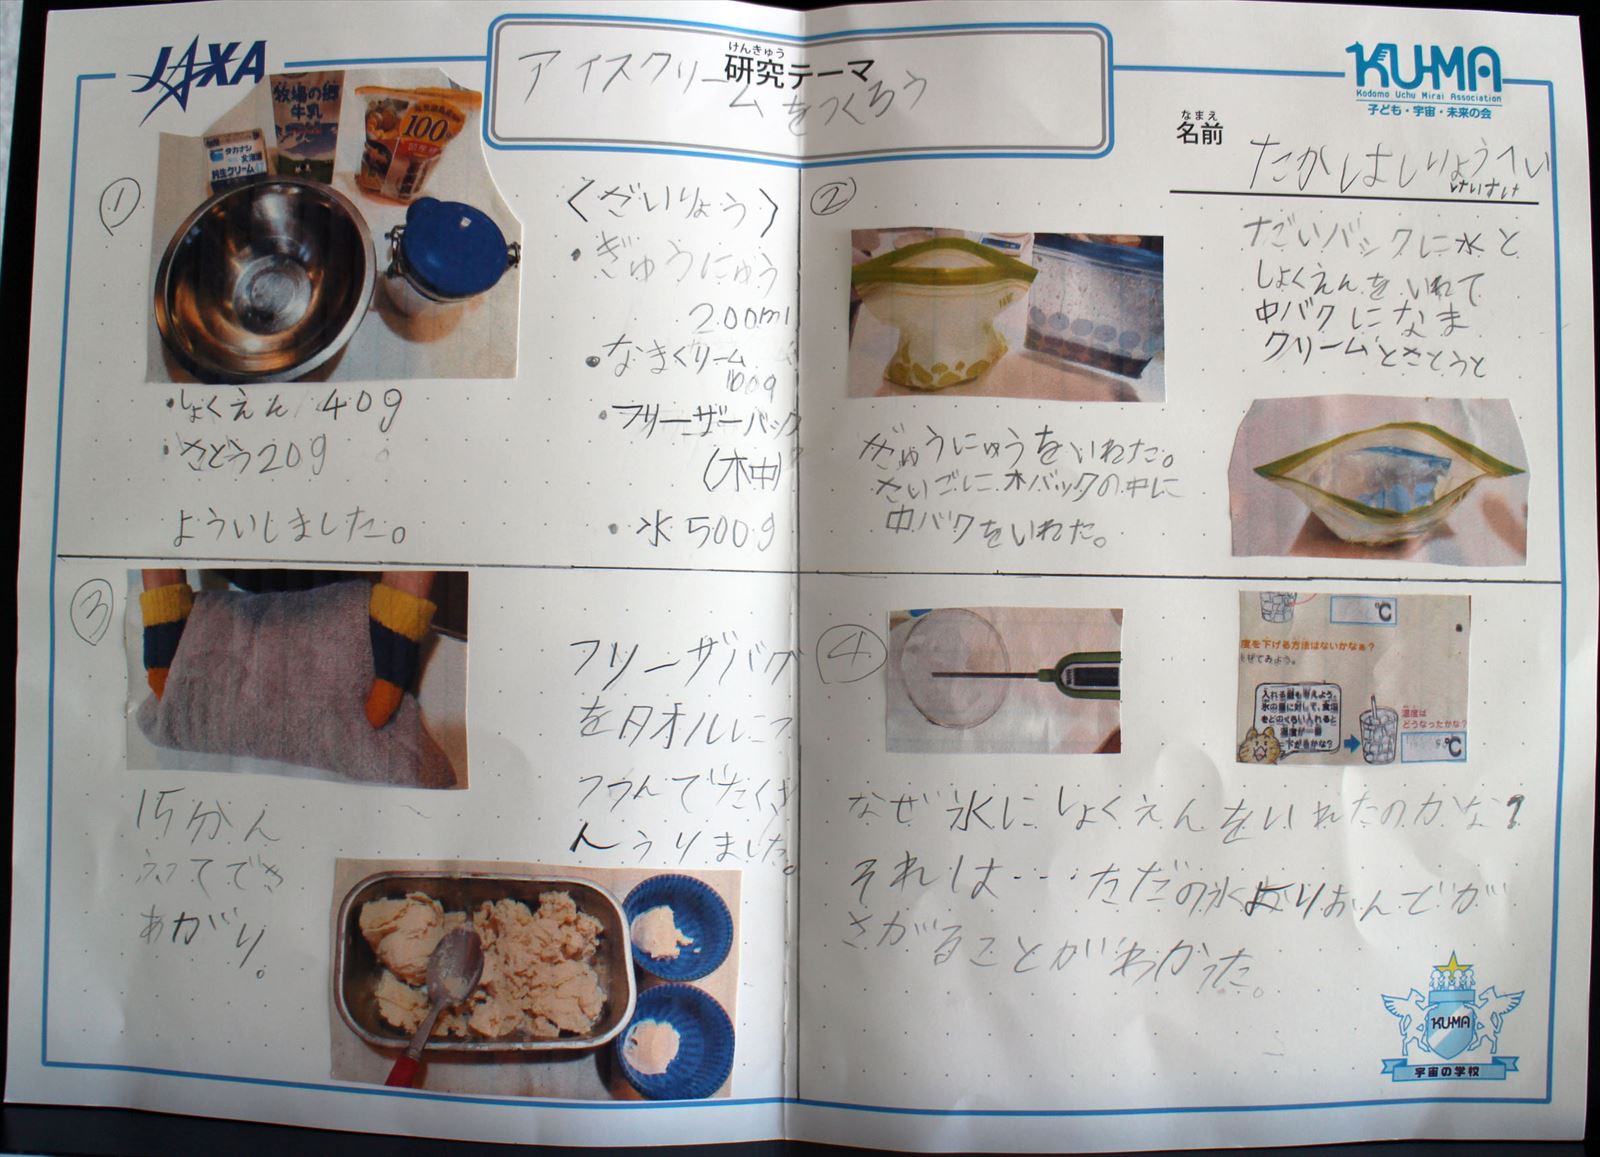 JAXA
けんきゅう
研究テーマ
アイスクリームをつくろう
KU-MA
Kodomo Uchu Mirai Association
子ども・宇宙・未来の会
なまえ
名前
たかはしりょうへい
けいすけ
①
牧場の郷
牛乳
タカナシ
北海道
純生クリーム47
100%
〈ざいりょう〉
・ぎゅうにゅう
200ml
・なまくりーム
100g
・フリーザーバック
(大中)
・氷500g
・しょくえん 40g
・さとう20g
よういしました。
②
だいバックに氷と
しょくえんをいれて
中バクになま
クリームとさとうと
ぎゅうにゅうをいれた。
さいごに大バックの中に
中バクをいれた。
③
フリーザバグ
をタオルにつ
つつんでたくさ
んふりました。
15分ん
ふってでき
あがり。
④
℃
度を下げる方法はないかなぁ?
ぜてみよう。
入れる量も考えよう。
氷の量に対して、食塩
をどのくらい入れると
温度が一番
下がるかな?
温度は
どうなったかな?
℃
なぜ氷にしょくえんをいれたのかな?
それは…ただの氷よりおんどが
さがることがわかった。
KU-MA
宇宙の学校